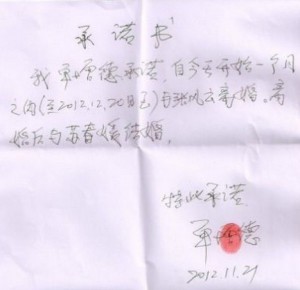 承诺书
我单增德承诺,自今天开始一个月
之内(至2012.12.20日已)与张凤云离婚。离
婚后与苏春媛结婚。
特此承诺
单增德
2012.11.21